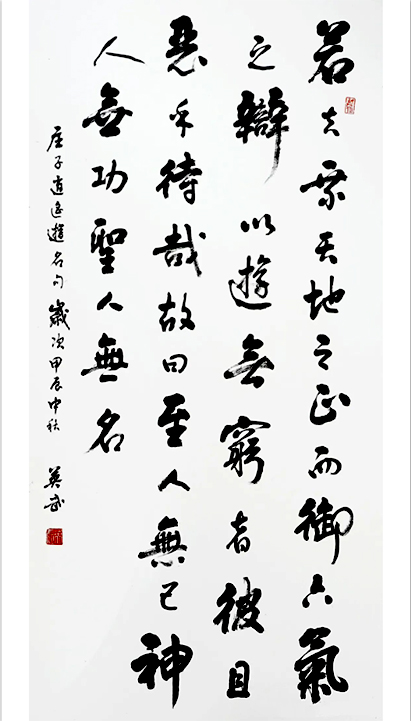 若夫乘天地之正而御六氣
之辯以遊無窮者彼且
惡乎待哉故曰至人無己神
人無功聖人無名
莊子逍遙遊名句歲次甲辰中秋 英武